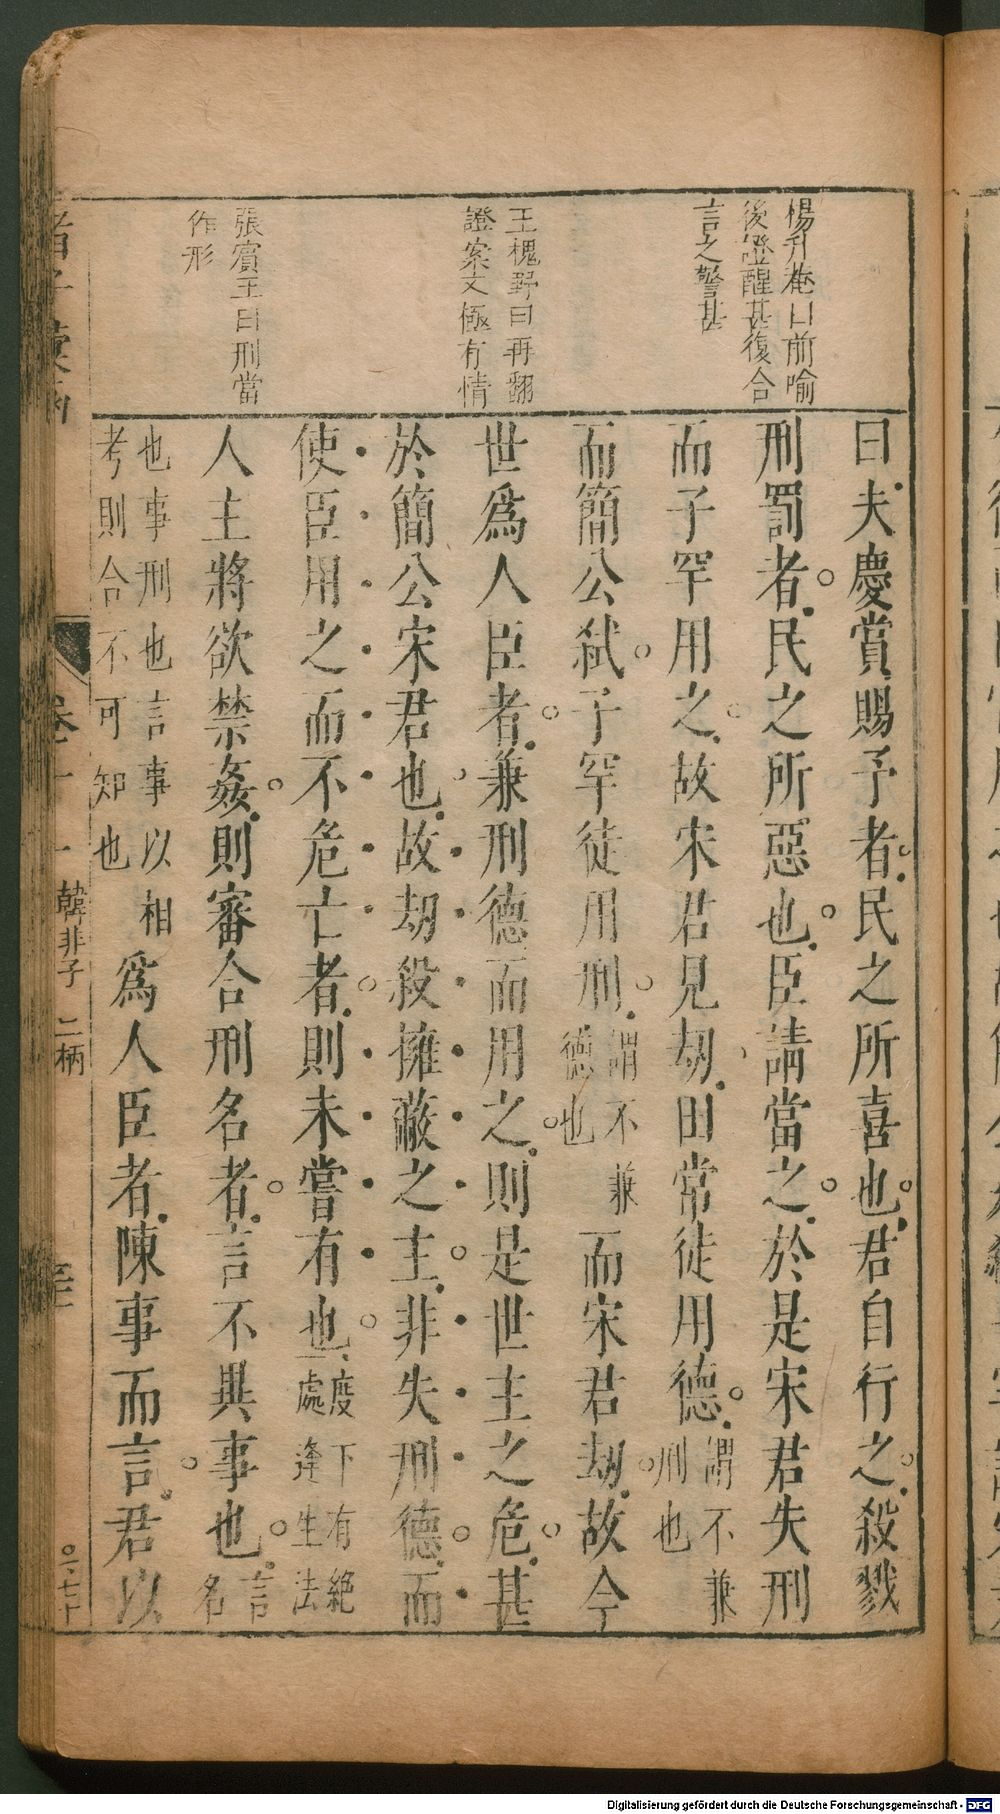 楊升菴曰前喻
後證醒甚復合
言之警甚
王槐野曰再翻
證案文極有情
張賓王曰刑當
作形
曰夫慶賞賜予者民之所喜也君自行之殺戮
刑罰者民之所惡也臣請當之於是宋君失刑
而子罕用之故宋君見劫田常徒用德謂不兼刑也
而簡公弑子罕徒用刑謂不兼德也而宋君劫故今
世爲人臣者兼刑德而用之則是世主之危甚
於簡公宋君也故劫殺擁蔽之主非失刑德而
使臣用之而不危亡者則未嘗有也度下有絕處逢生法
人主將欲禁姦則審合刑名者言不異事也言名
也事刑也言事以相考則合不可知也爲人臣者陳事而言君以
韓非子 二柄
Digitalisierung gefördert durch die Deutsche Forschungsgemeinschaft - DFG